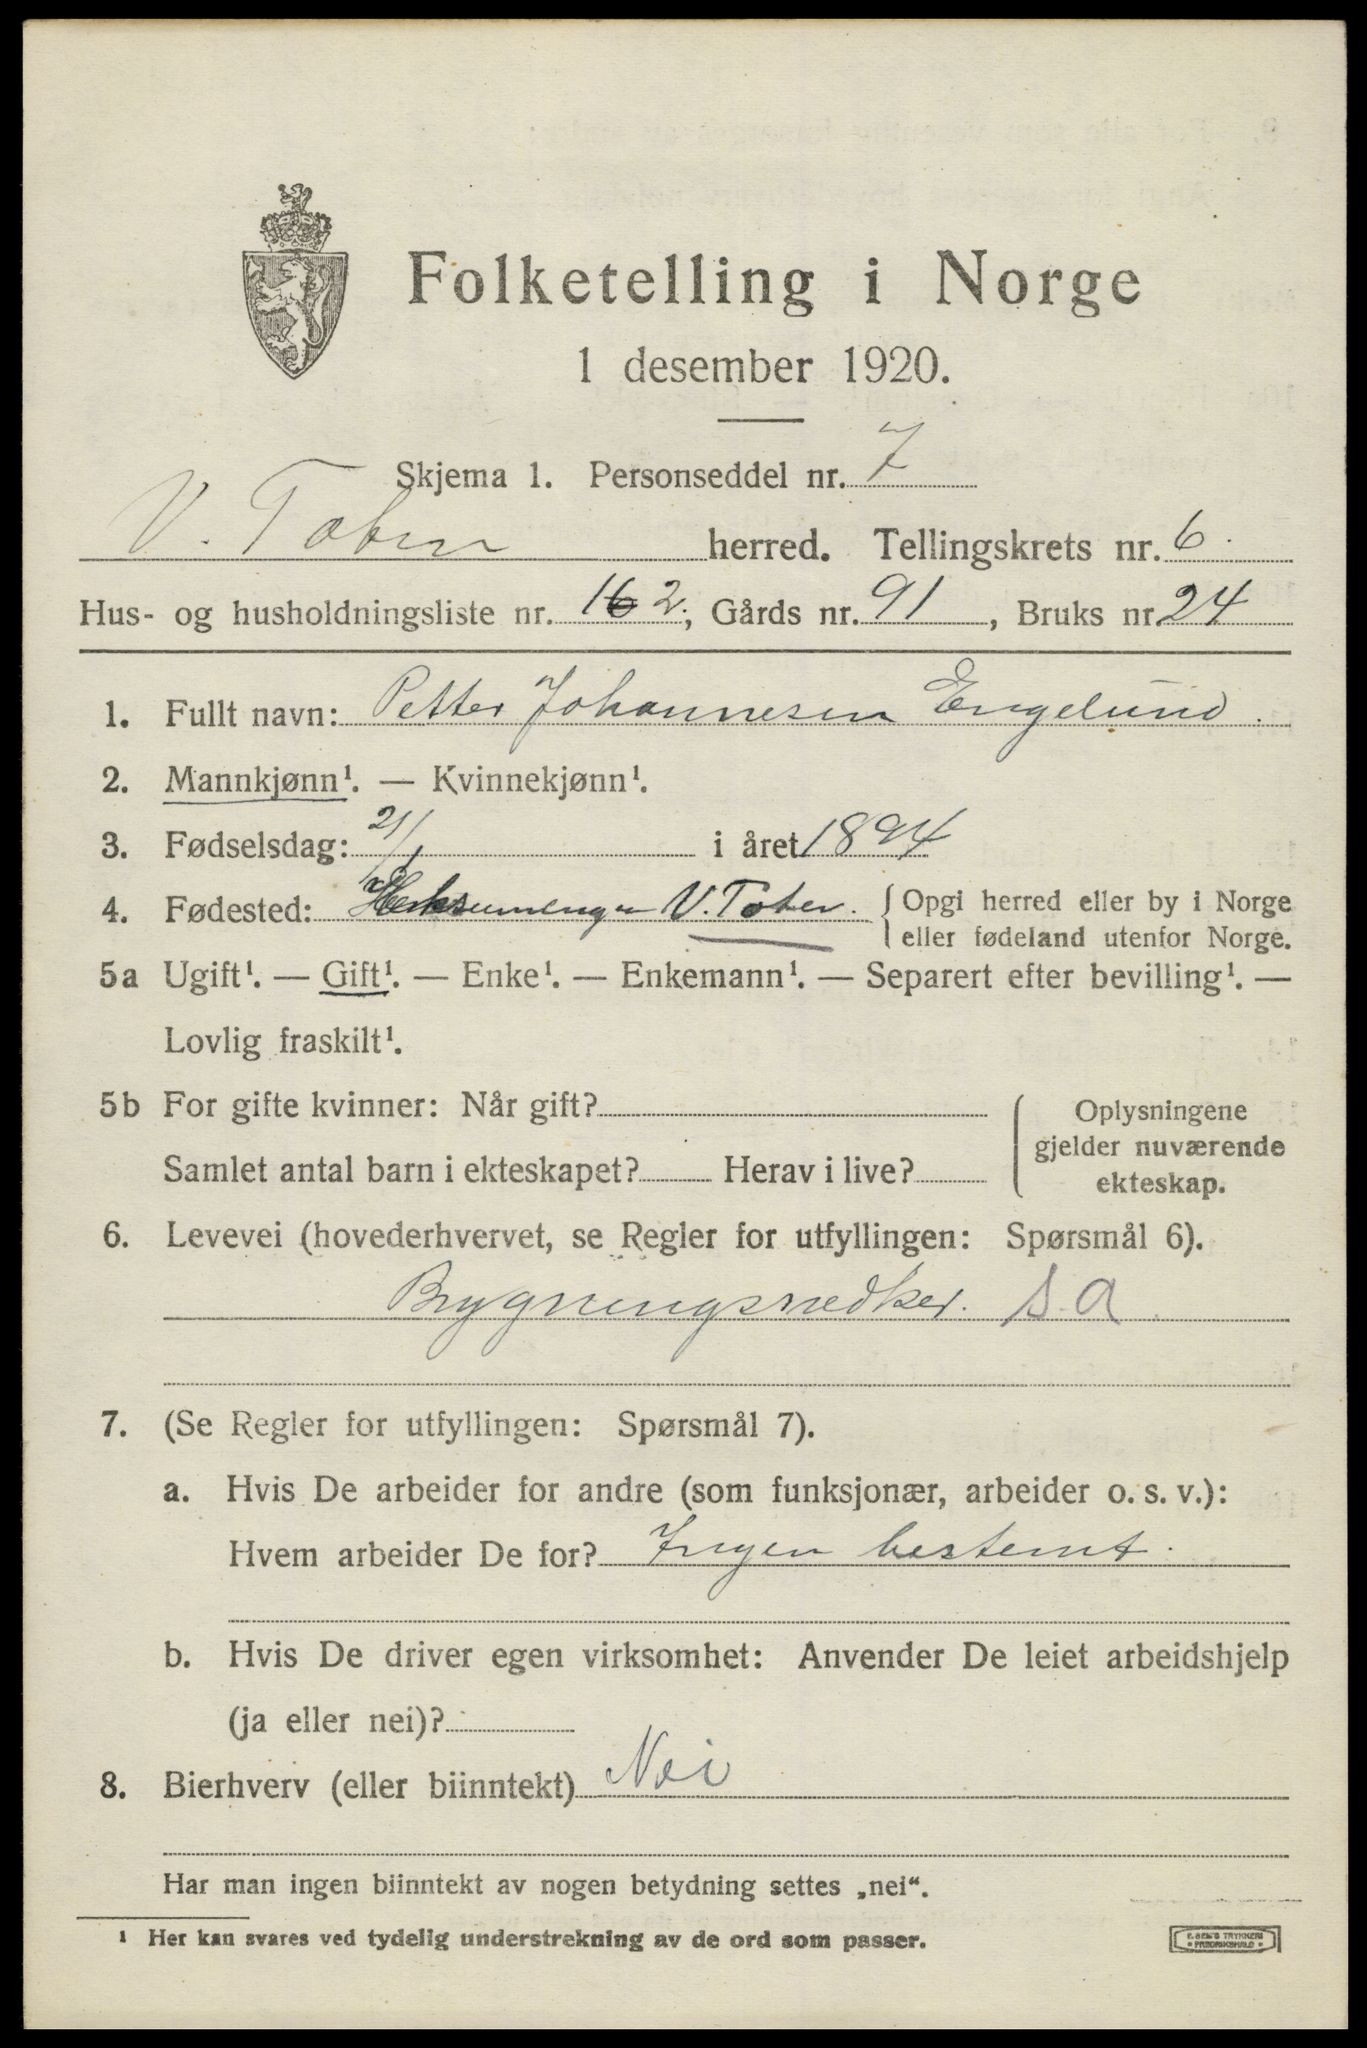 Folketelling i Norge
1 desember 1920.
Skjema 1. Personseddel nr. 7
V. Toten herred. Tellingskrets nr. 6.
Hus- og husholdningsliste nr. 162; Gårds nr. 91, Bruks nr. 24
1. Fullt navn: Petter Johannesen Engelund.
2. Mannkjønn¹. — Kvinnekjønn¹.
3. Fødselsdag: 21/1 i året 1894
4. Fødested: V. Toten. { Opgi herred eller by i Norge
eller fødeland utenfor Norge.
5a Ugift¹. — Gift¹. — Enke¹. — Enkemann¹. — Separert efter bevilling¹. —
Lovlig fraskilt¹.
5b For gifte kvinner: Når gift?
Samlet antal barn i ekteskapet? Herav i live?
Oplysningene
gjelder nuværende
ekteskap.
6. Levevei (hovederhvervet, se Regler for utfyllingen: Spørsmål 6).
Bygningssnedker. s. a.
7. (Se Regler for utfyllingen: Spørsmål 7).
a. Hvis De arbeider for andre (som funksjonær, arbeider o. s. v.):
Hvem arbeider De for? Ingen bestemt.
b. Hvis De driver egen virksomhet: Anvender De leiet arbeidshjelp
(ja eller nei)?
8. Bierhverv (eller biinntekt) Nei
Har man ingen biinntekt av nogen betydning settes „nei“.
¹ Her kan svares ved tydelig understrekning av de ord som passer.
E. SEM'S TRYKKERI
• FREDRIKSHALD •